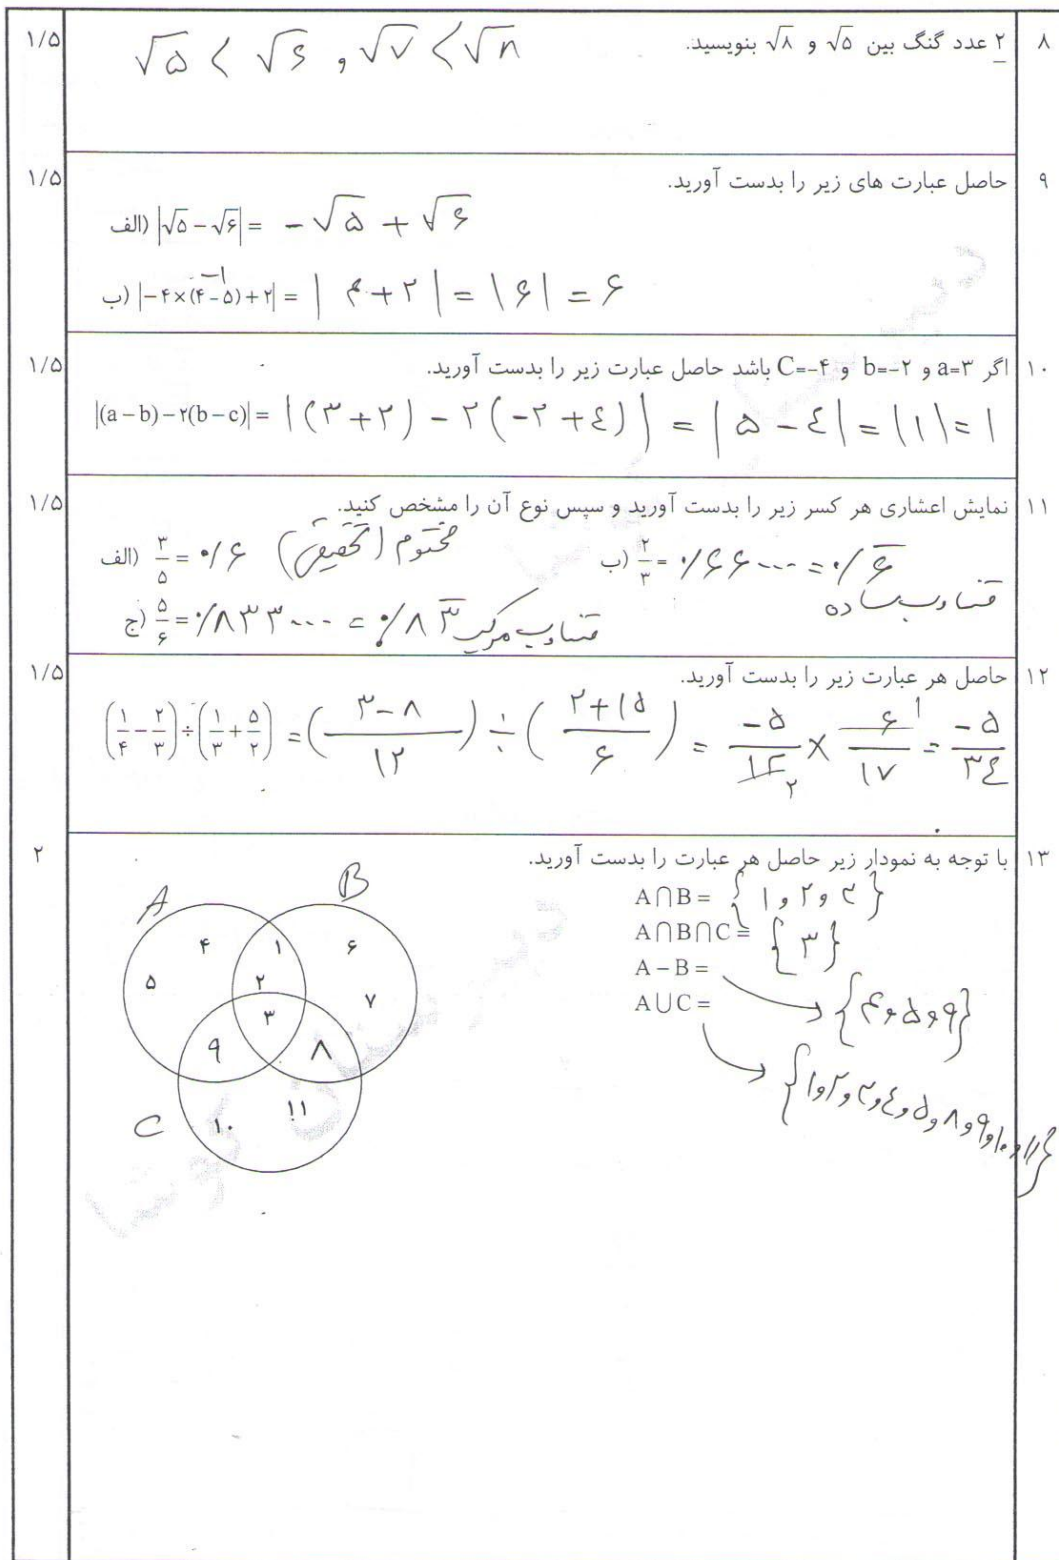 ۸ ۲ عدد گنگ بین √۵ و √۸ بنویسید. √۵ < √۶ و √۷ < √۸ ۱/۵
۹ حاصل عبارت های زیر را بدست آورید. ۱/۵
الف) |√۵-√۶| = -√۵ + √۶
ب) |-۴×(۴-۵)+۲| = |۴+۲| = |۶| = ۶
-۱
۱۰ اگر a=۳ و b=-۲ و C=-۴ باشد حاصل عبارت زیر را بدست آورید. ۱/۵
|(a-b)-۲(b-c)| = |(۳+۲)-۲(-۲+٤)| = |۵-٤| = |۱| = ۱
۱۱ نمایش اعشاری هر کسر زیر را بدست آورید و سپس نوع آن را مشخص کنید. ۱/۵
الف) ۳/۵ = ۰/۶ مختوم (تحقیقی) ب) ۲/۳ = ۰/۶۶... = ۰/۶̅
متناوب ساده
ج) ۵/۶ = ۰/۸۳۳... = ۰/۸۳̅ متناوب مرکب
۱۲ حاصل هر عبارت زیر را بدست آورید. ۱/۵
(۱/۴ - ۲/۳) ÷ (۱/۳ + ۵/۲) = (۳-۸/۱۲) ÷ (۲+۱۵/۶) = -۵/۱۲ ۲ × ۶ ۱/۱۷ = -۵/۳٤
۱۳ با توجه به نمودار زیر حاصل هر عبارت را بدست آورید. ۲
A∩B = {۱ و ۲ و ۳}
A∩B∩C = {۳}
A-B = {۴ و ۵ و ۹}
A∪C = {۱ و ۲ و ۳ و ٤ و ۵ و ۸ و ۹ و ۱۰ و ۱۱}
A B
۴ ۱ ۶
۵ ۲ ۷
۳
۹ ۸
C ۱۰ ۱۱